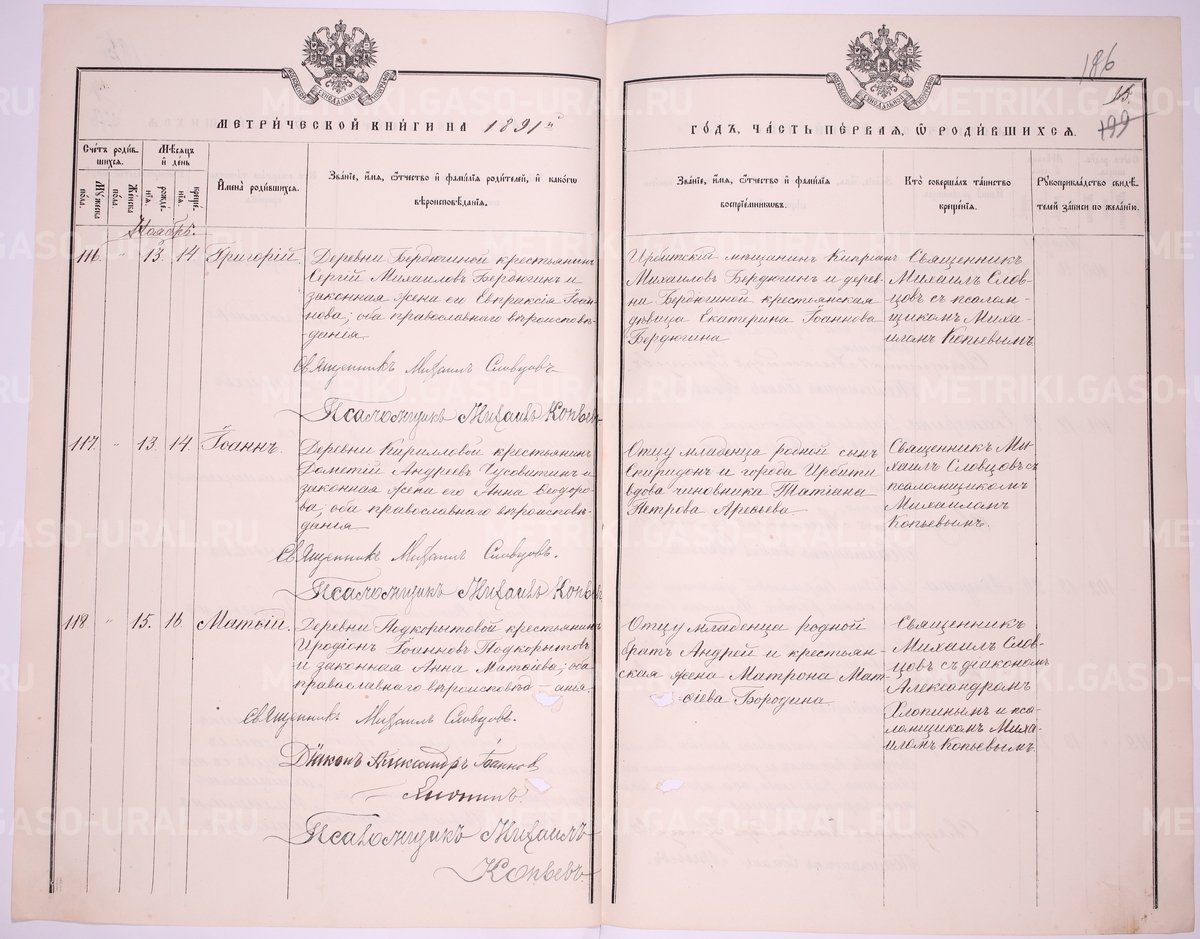 186
15.
199
МЕТРИ́ЧЕСКОЙ КНИ́ГИ НА 1891й
ГО́ДЪ, ЧА́СТЬ ПЕ́РВАЯ, Ѿ РОДИ́ВШИХСЯ.
Сче́тъ роди́в-
шихся.
Му́жеска по́ла.
Же́нска по́ла.
Мѣ́сяцъ
и҆ де́нь
рожде́-
нїѧ.
креще́-
нїѧ.
И҆мена̀ роди́вшихся.
Зва́нїе, и҆́мѧ, ѻ҆́тчество и҆ фамѵ́лїѧ роди́телей, и҆ како́гѡ
вѣроисповѣ́данїѧ.
Зва́нїе, и҆́мѧ, ѻ҆́тчество и҆ фамѵ́лїѧ
воспрїе́мниковъ.
Кто̀ соверша́лъ та́инство
креще́нїѧ.
Рꙋкоприкла́дство свидѣ́-
телей за́писи по жела́нїю.
Ноябрь.
116. " 13. 14 Григорій
Деревни Бердюгиной крестьянинъ
Сергій Михаиловъ Бердюгинъ и
законная жена его Евпраксія Іоан-
нова; оба православнаго вѣроисповѣ-
данія.
Священникъ Михаилъ Словцовъ
Псаломщикъ Михаилъ Копьевъ
Ирбитскій мѣщанинъ Кипріанъ
Михаиловъ Бердюгинъ и дерев-
ни Бердюгиной крестьянская
дѣвица Екатерина Іоаннова
Бердюгина
Священникъ
Михаилъ Слов-
цовъ съ псалом-
щикомъ Миха-
иломъ Копьевымъ
117. " 13. 14. Іоаннъ.
Деревни Кирилловой крестьянинъ
Дометій Андреевъ Чусовитинъ и
законная жена его Анна Ѳеодоро-
ва; оба православнаго вѣроисповѣ-
данія
Священникъ Михаилъ Словцовъ.
Псаломщикъ Михаилъ Копьевъ
Отцу младенца родной сынъ
Спиридонъ и города Ирбити
вдова чиновника Татіана
Петрова Арефьева
Священникъ Ми-
хаилъ Словцовъ съ
псаломщикомъ
Михаиломъ
Копьевымъ.
118. " 15. 16 Матѳій.
Деревни Подкорытовой крестьянинъ
Иродіонъ Іоанновъ Подкорытовъ
и законная Анна Матѳіева; оба
православнаго вѣроисповѣд—анія.
Священникъ Михаилъ Словцовъ.
Діаконъ Александръ Іоанновъ
Хлопинъ.
Псаломщикъ Михаилъ
Копьевъ
Отцу младенца родной
братъ Андрей и крестьян-
ская жена Матрона Мат-
ѳіева Бородина
Священникъ
Михаилъ Слов-
цовъ съ діакономъ
Александромъ
Хлопинымъ и пса-
ломщикомъ Миха-
иломъ Копьевымъ
METRIKI.GASO-URAL.RU